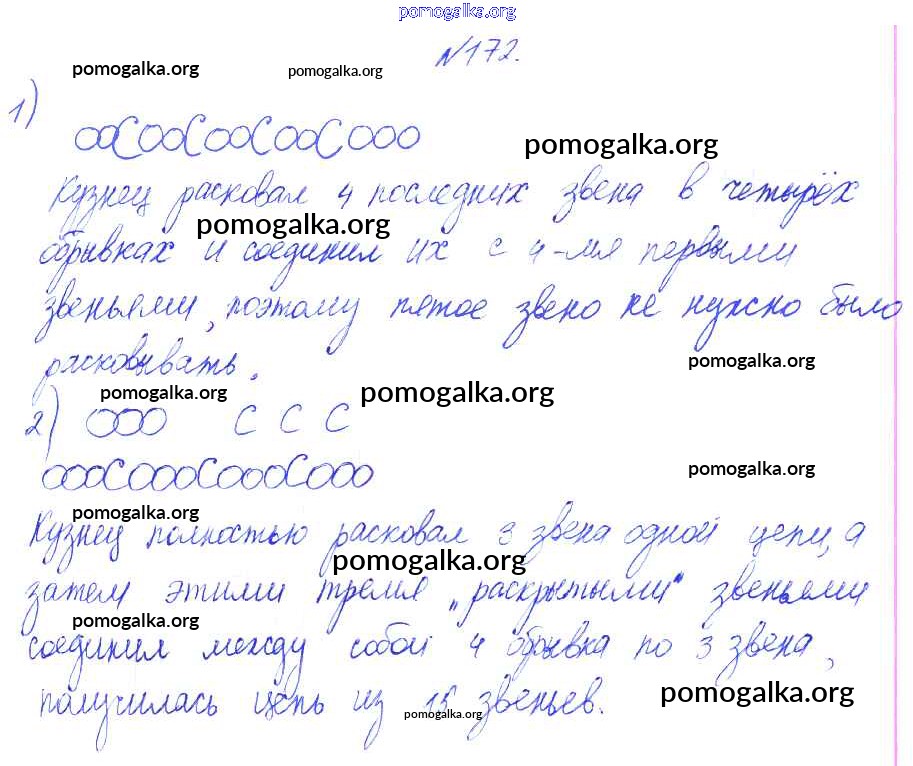 pomogalka.org
№172.
pomogalka.org pomogalka.org
1)
pomogalka.org
Кузнец расковал 4 последних звена в четырёх
pomogalka.org
обрывках и соединил их с 4-мя первыми
звеньями, поэтому пятое звено не нужно было
pomogalka.org
расковывать.
pomogalka.org pomogalka.org
2) С С С
pomogalka.org
pomogalka.org
Кузнец полностью расковал 3 звена одной цепи, а
pomogalka.org
затем этими тремя „раскрытыми" звеньями
pomogalka.org
соединил между собой 4 обрывка по 3 звена,
pomogalka.org
получилась цепь из 15 звеньев.
pomogalka.org